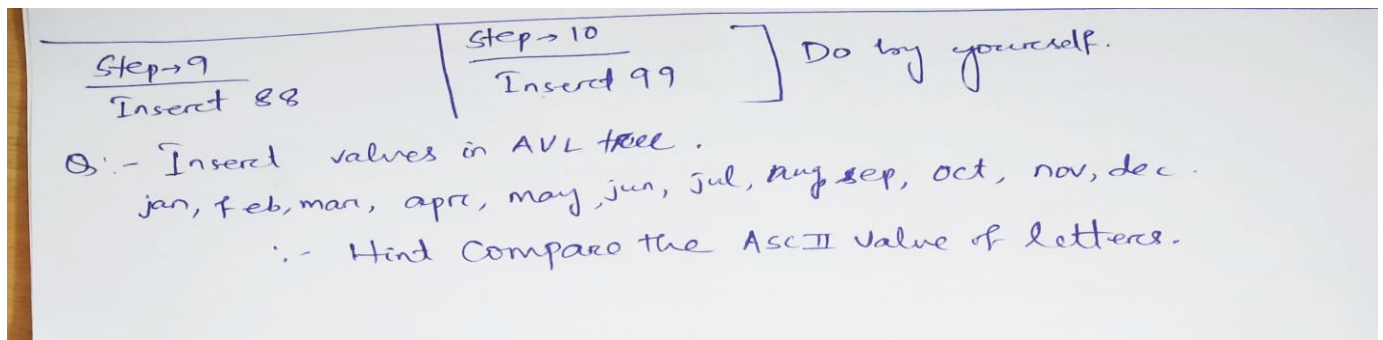 Step→9
Insert 88
Step→10
Insert 99
] Do by yourself.
Q:- Insert values in AVL tree.
jan, feb, mar, apr, may, jun, jul, aug sep, oct, nov, dec.
:- Hint Compare the ASCII value of letters.